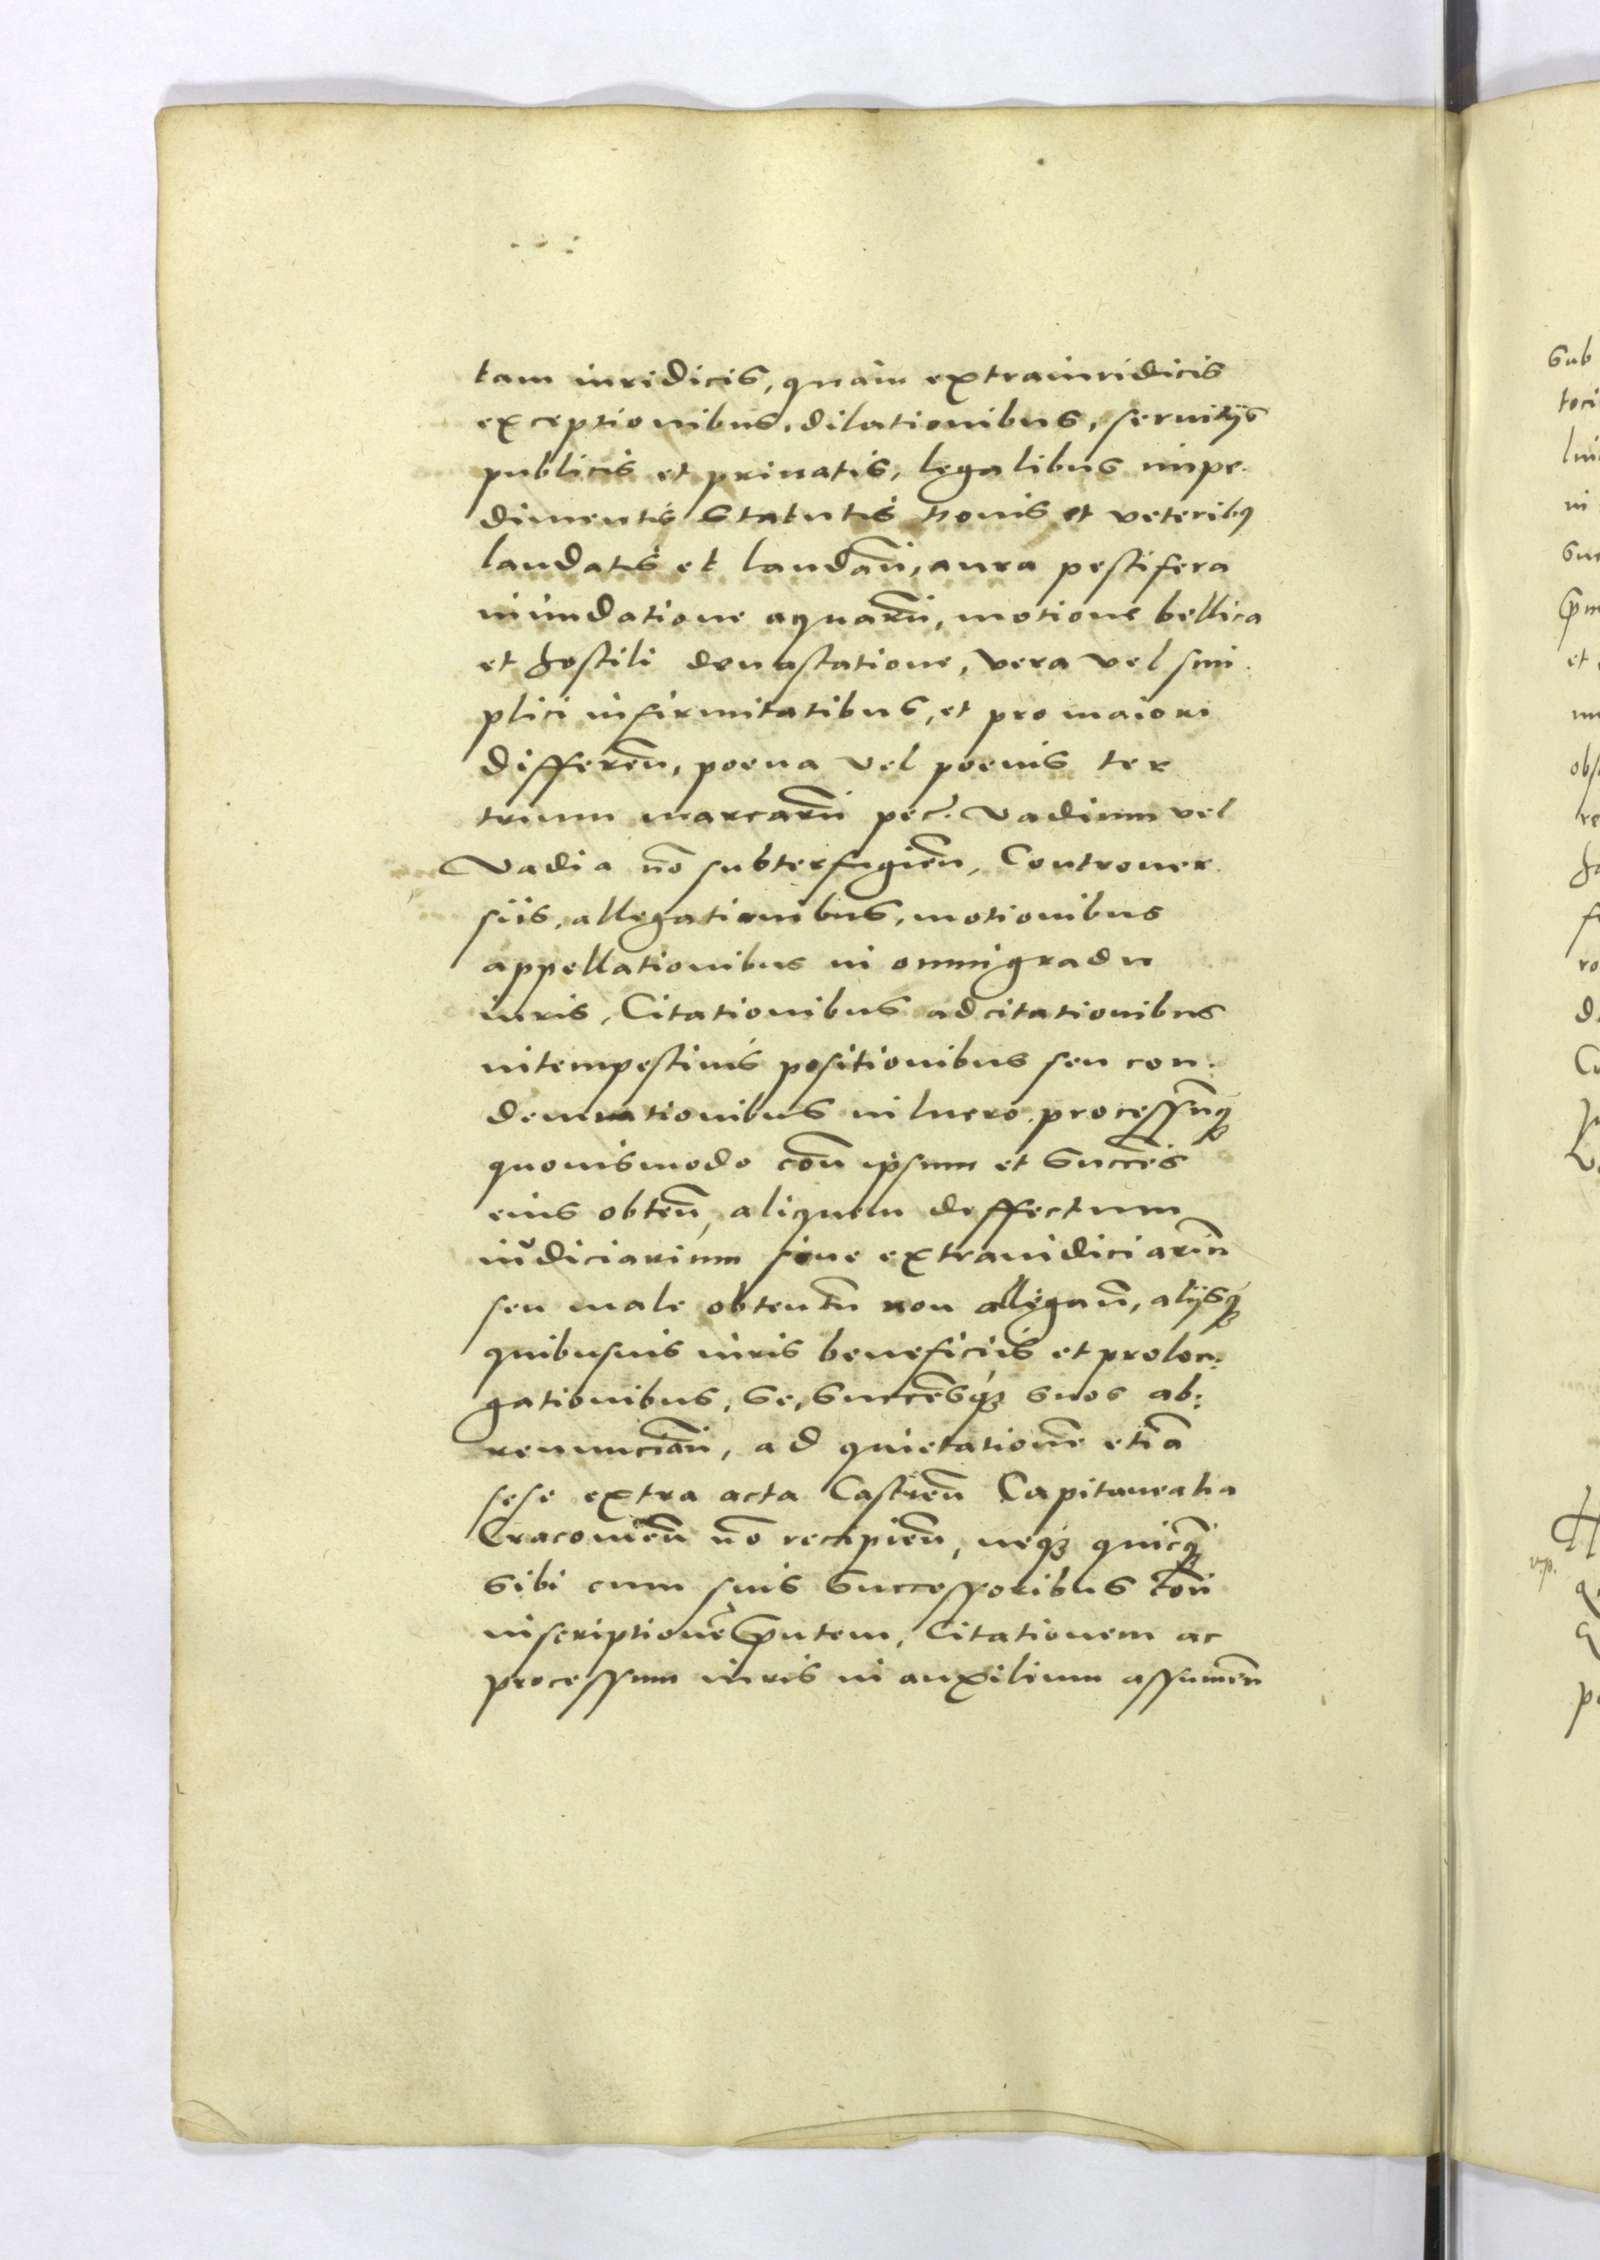 tam iuridicis, quam extraiuridicis
exceptionibus, dilationibus, seruitijs
publicis et priuatis, legalibus impe-
dimentis statutis nouis et veteribꝫ
laudatis et laudañ, aura pestifera
inundatione aquarũ, motione bellica
et hostili deuastatione, vera vel sim-
plici infirmitatibus, et pro maiori
differeñ, poena vel poenis ter
trium marcarũ pec. vadium vel
vadia nõ subterfugieñ, Controuer
siis, allegationibus, motionibus
appellationibus in omni gradu
iuris, Citationibus adcitationibus
intempestiuis positionibus seu con-
demnationibus in lucro processũqꝫ
quouismodo coñ ipsum et Succes̃
eius obteñ, aliquem deffectum
iudiciarium siue extraiudiciariũ
seu male obtentũ non allegañ, alijsqꝫ
quibusuis iuris beneficiis et proloc-
gationibus, se, Succes̃qꝫ suos ab-
renunciañ, ad quietationẽ etiã
sese extra acta Castreñ Capitanealia
Cracouieñ nõ recipieñ, neqꝫ quicqꝫ
sibi cum suis Successoribus coñ
inscriptionẽ p̃ntem, Citationem ac
processum iuris in auxilium assumeñ
sub
et